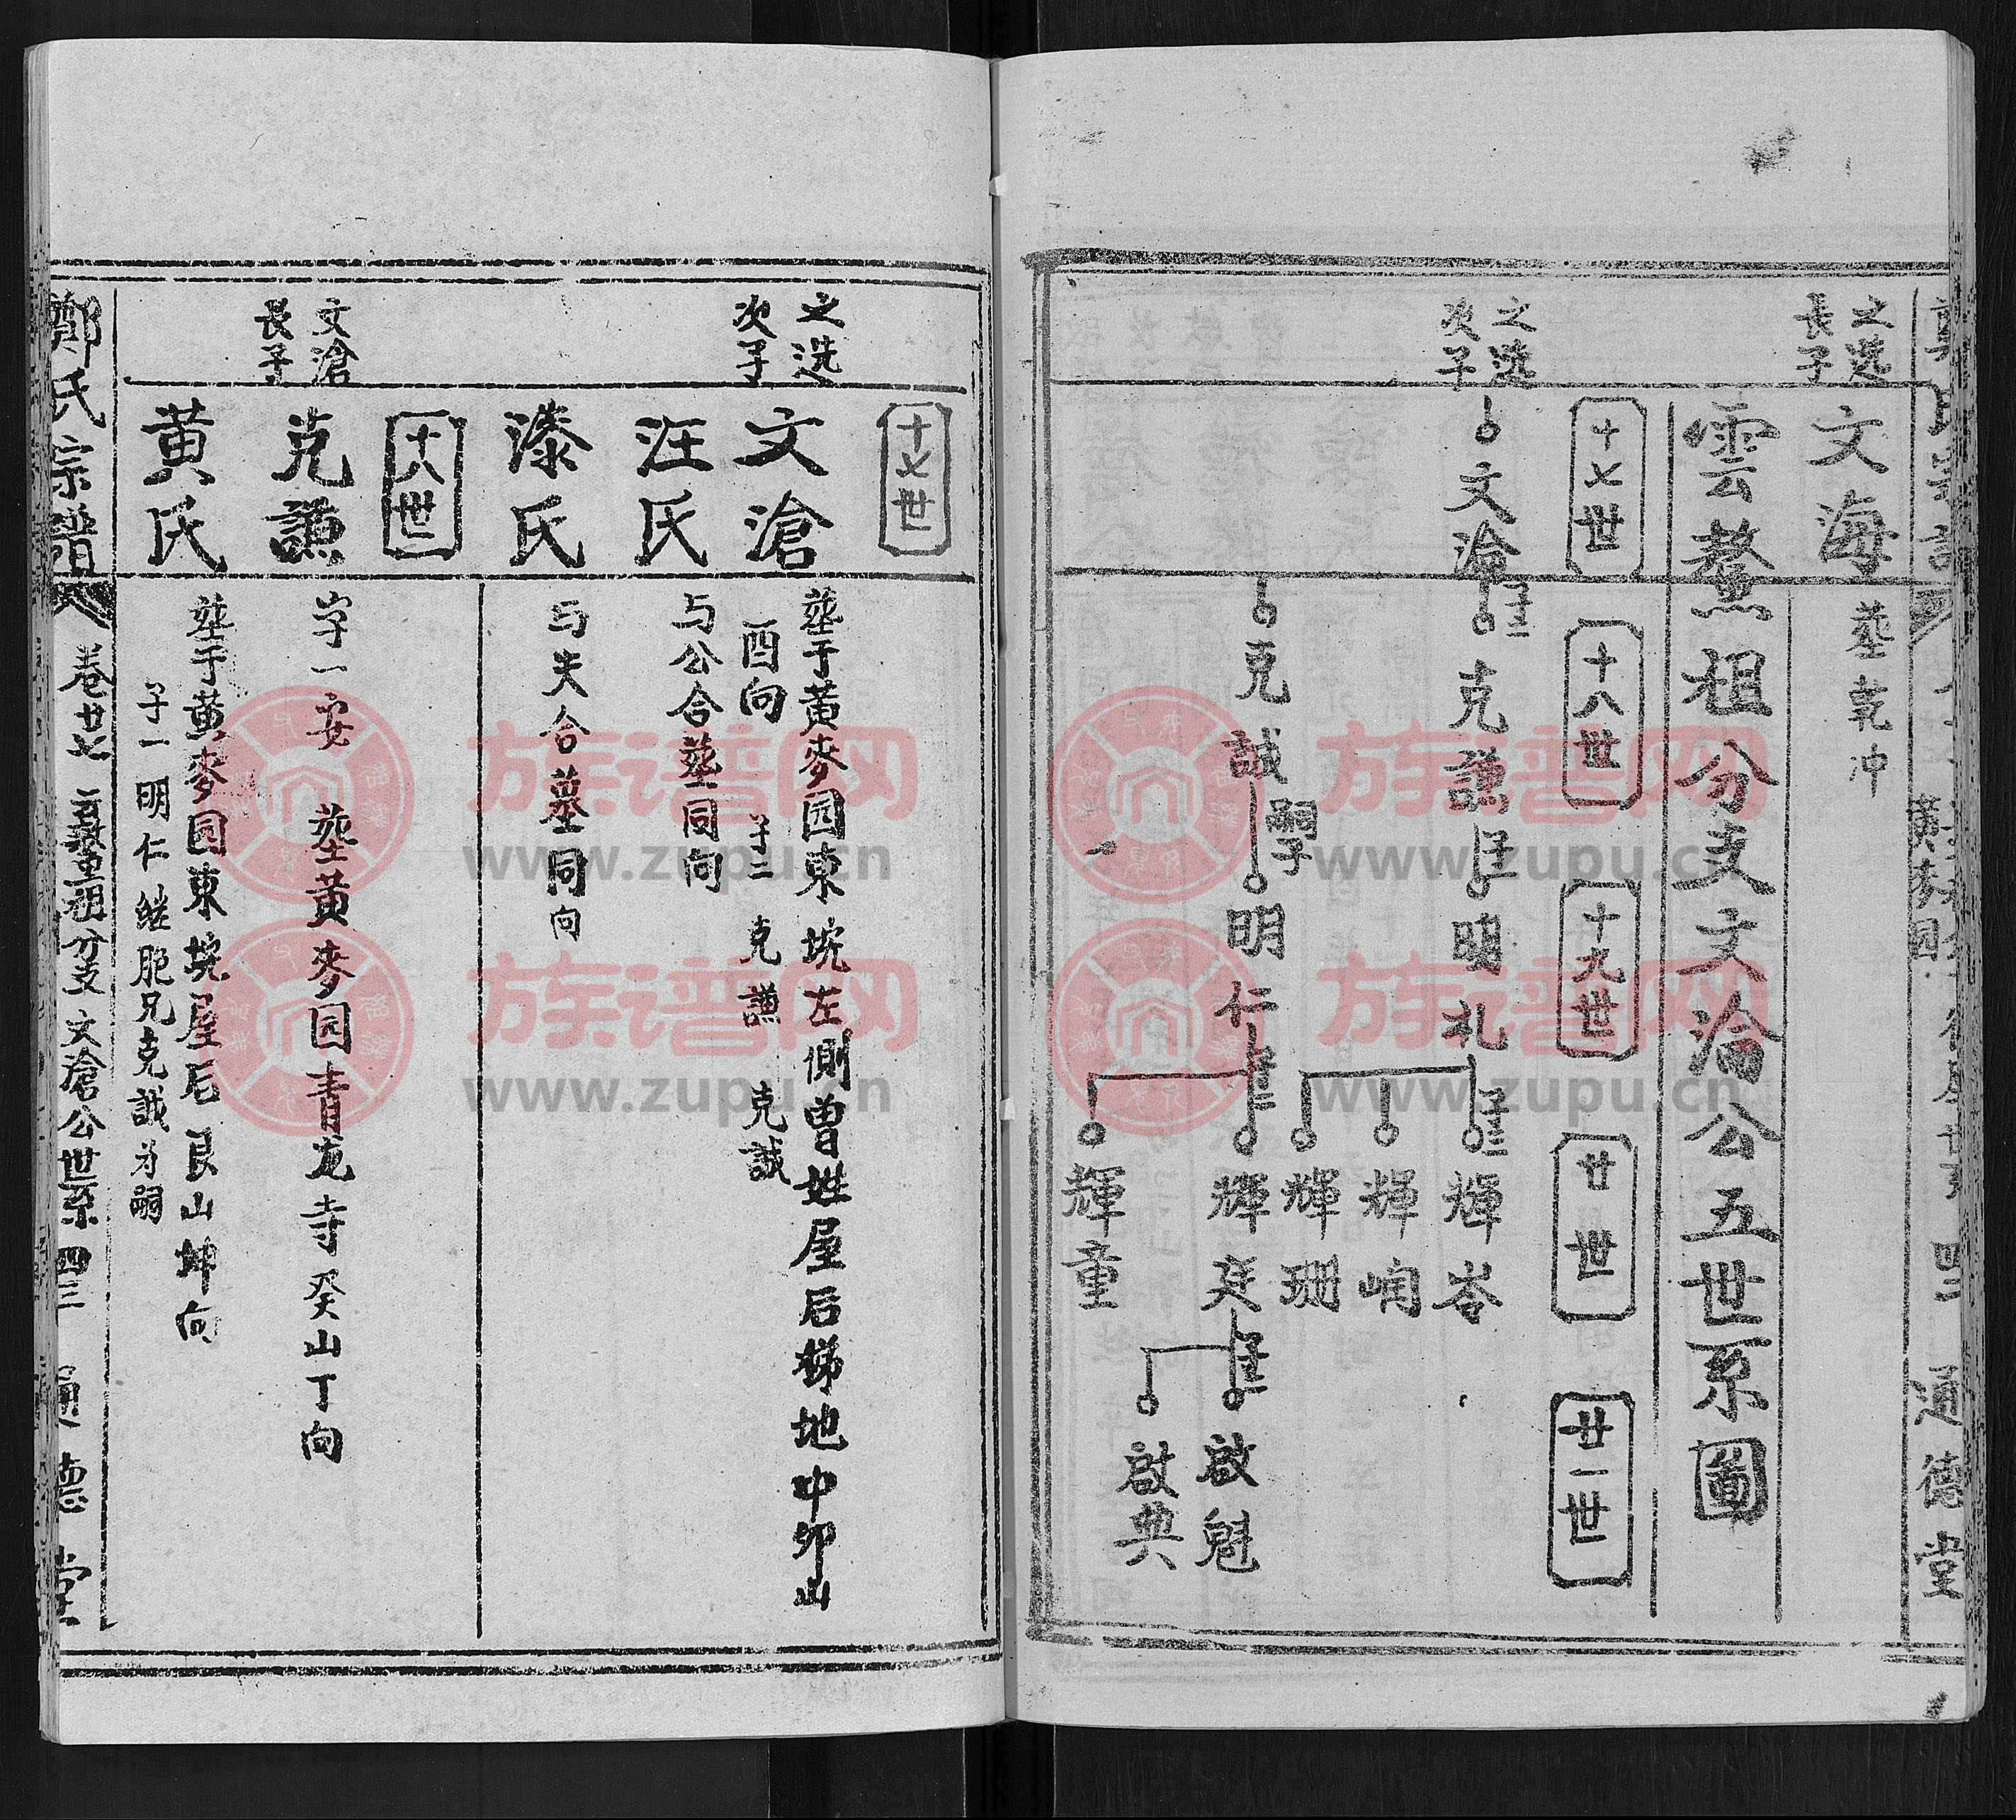 通德堂
之选長子
文海
塟乾冲
雲鰲祖分支文淪公五世系圖
十七世
十八世
十九世
廿世
廿一世
之选次子
文淪
子二
克謙
子一
明礼
子三
輝岺
輝峋
輝珊
克誠
嗣子
明仁
子二
輝廷
子二
啟魁
啟典
輝童
十七世
之选次子
文滄
塟于黃麥园東垸左側曾姓屋后梯地中卯山
酉向 子二 克謙 克誠
汪氏
与公合塟同向
漆氏
与夫合墓同向
十八世
文滄長子
克謙
字一安 塟黃麥园青龙寺癸山丁向
黃氏
塟于黃麥园東垸屋后艮山坤向
子一明仁继胞兄克誠为嗣
鄭氏宗譜
卷廿七
祖分支 文滄公世系 四三
通德堂
族谱网
www.zupu.cn
族谱网
www.zupu.cn
族谱网
www.zupu.cn
族谱网
www.zupu.cn